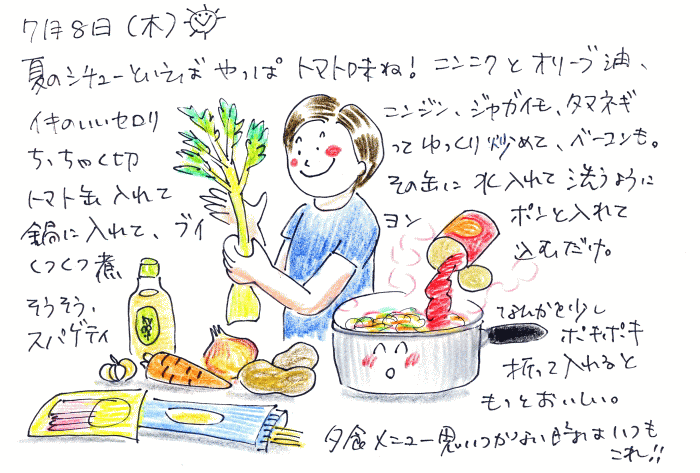 7月8日(木)
夏のシチューといえば やっぱ トマト味ね! ニンニクとオリーブ油、
イキのいいセロリ ニンジン、ジャガイモ、タマネギ
ちっちゃく切 ってゆっくり炒めて、ベーコンも。
トマト缶 入れて その缶に水入れて洗うように
鍋に入れて、ブイ ヨン ポンと入れて
くつくつ煮 込むだけ。
そうそう、
スパゲティ なんかを少し
ポキポキ
折って入れると
もっとおいしい。
夕食メニュー思いつかない時はいつも
これ!!